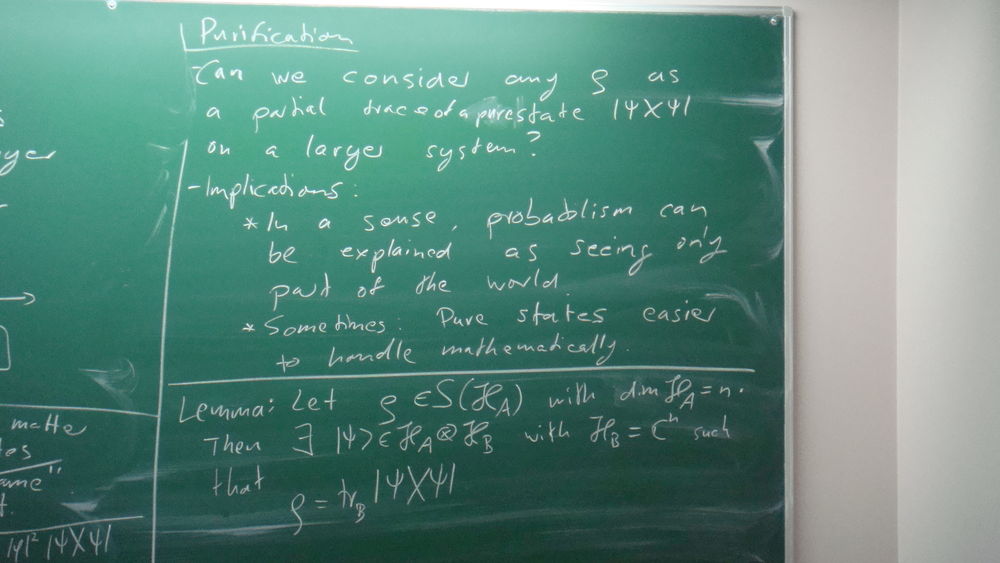 yer
matte
ame"
|ψ|² |ψ⟩⟨ψ|
Purification
- Can we consider any ρ as
a partial trace of a pure state |ψ⟩⟨ψ|
on a larger system?
- Implications:
* In a sense, probabilism can
be explained as seeing only
part of the world.
* Sometimes: Pure states easier
to handle mathematically.
Lemma: Let ρ ∈ S(ℋ_A) with dim ℋ_A = n.
Then ∃ |ψ⟩ ∈ ℋ_A ⊗ ℋ_B with ℋ_B = ℂⁿ such
that
ρ = tr_B |ψ⟩⟨ψ|